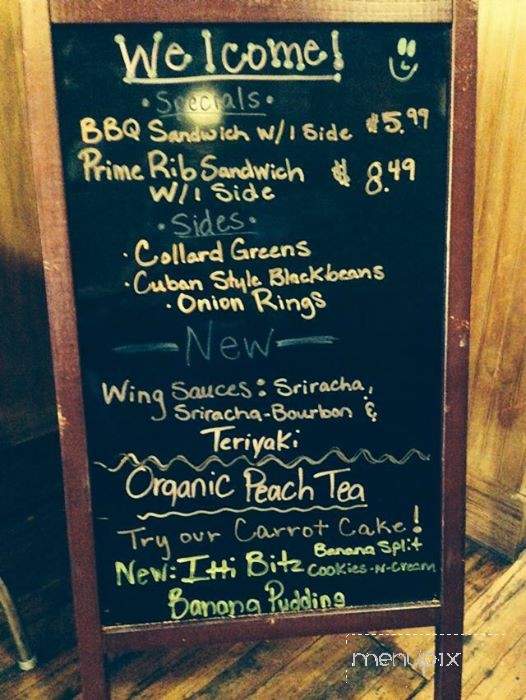 Welcome!
• Specials •
BBQ Sandwich w/1 Side $5.99
Prime Rib Sandwich $8.49
w/1 Side
• Sides •
• Collard Greens
• Cuban Style Blackbeans
• Onion Rings
— New —
Wing Sauces: Sriracha,
Sriracha-Bourbon &
Teriyaki
Organic Peach Tea
Try our Carrot Cake!
New: Itti Bitz Banana Split
Cookies-N-Cream
Banana Pudding
menupix